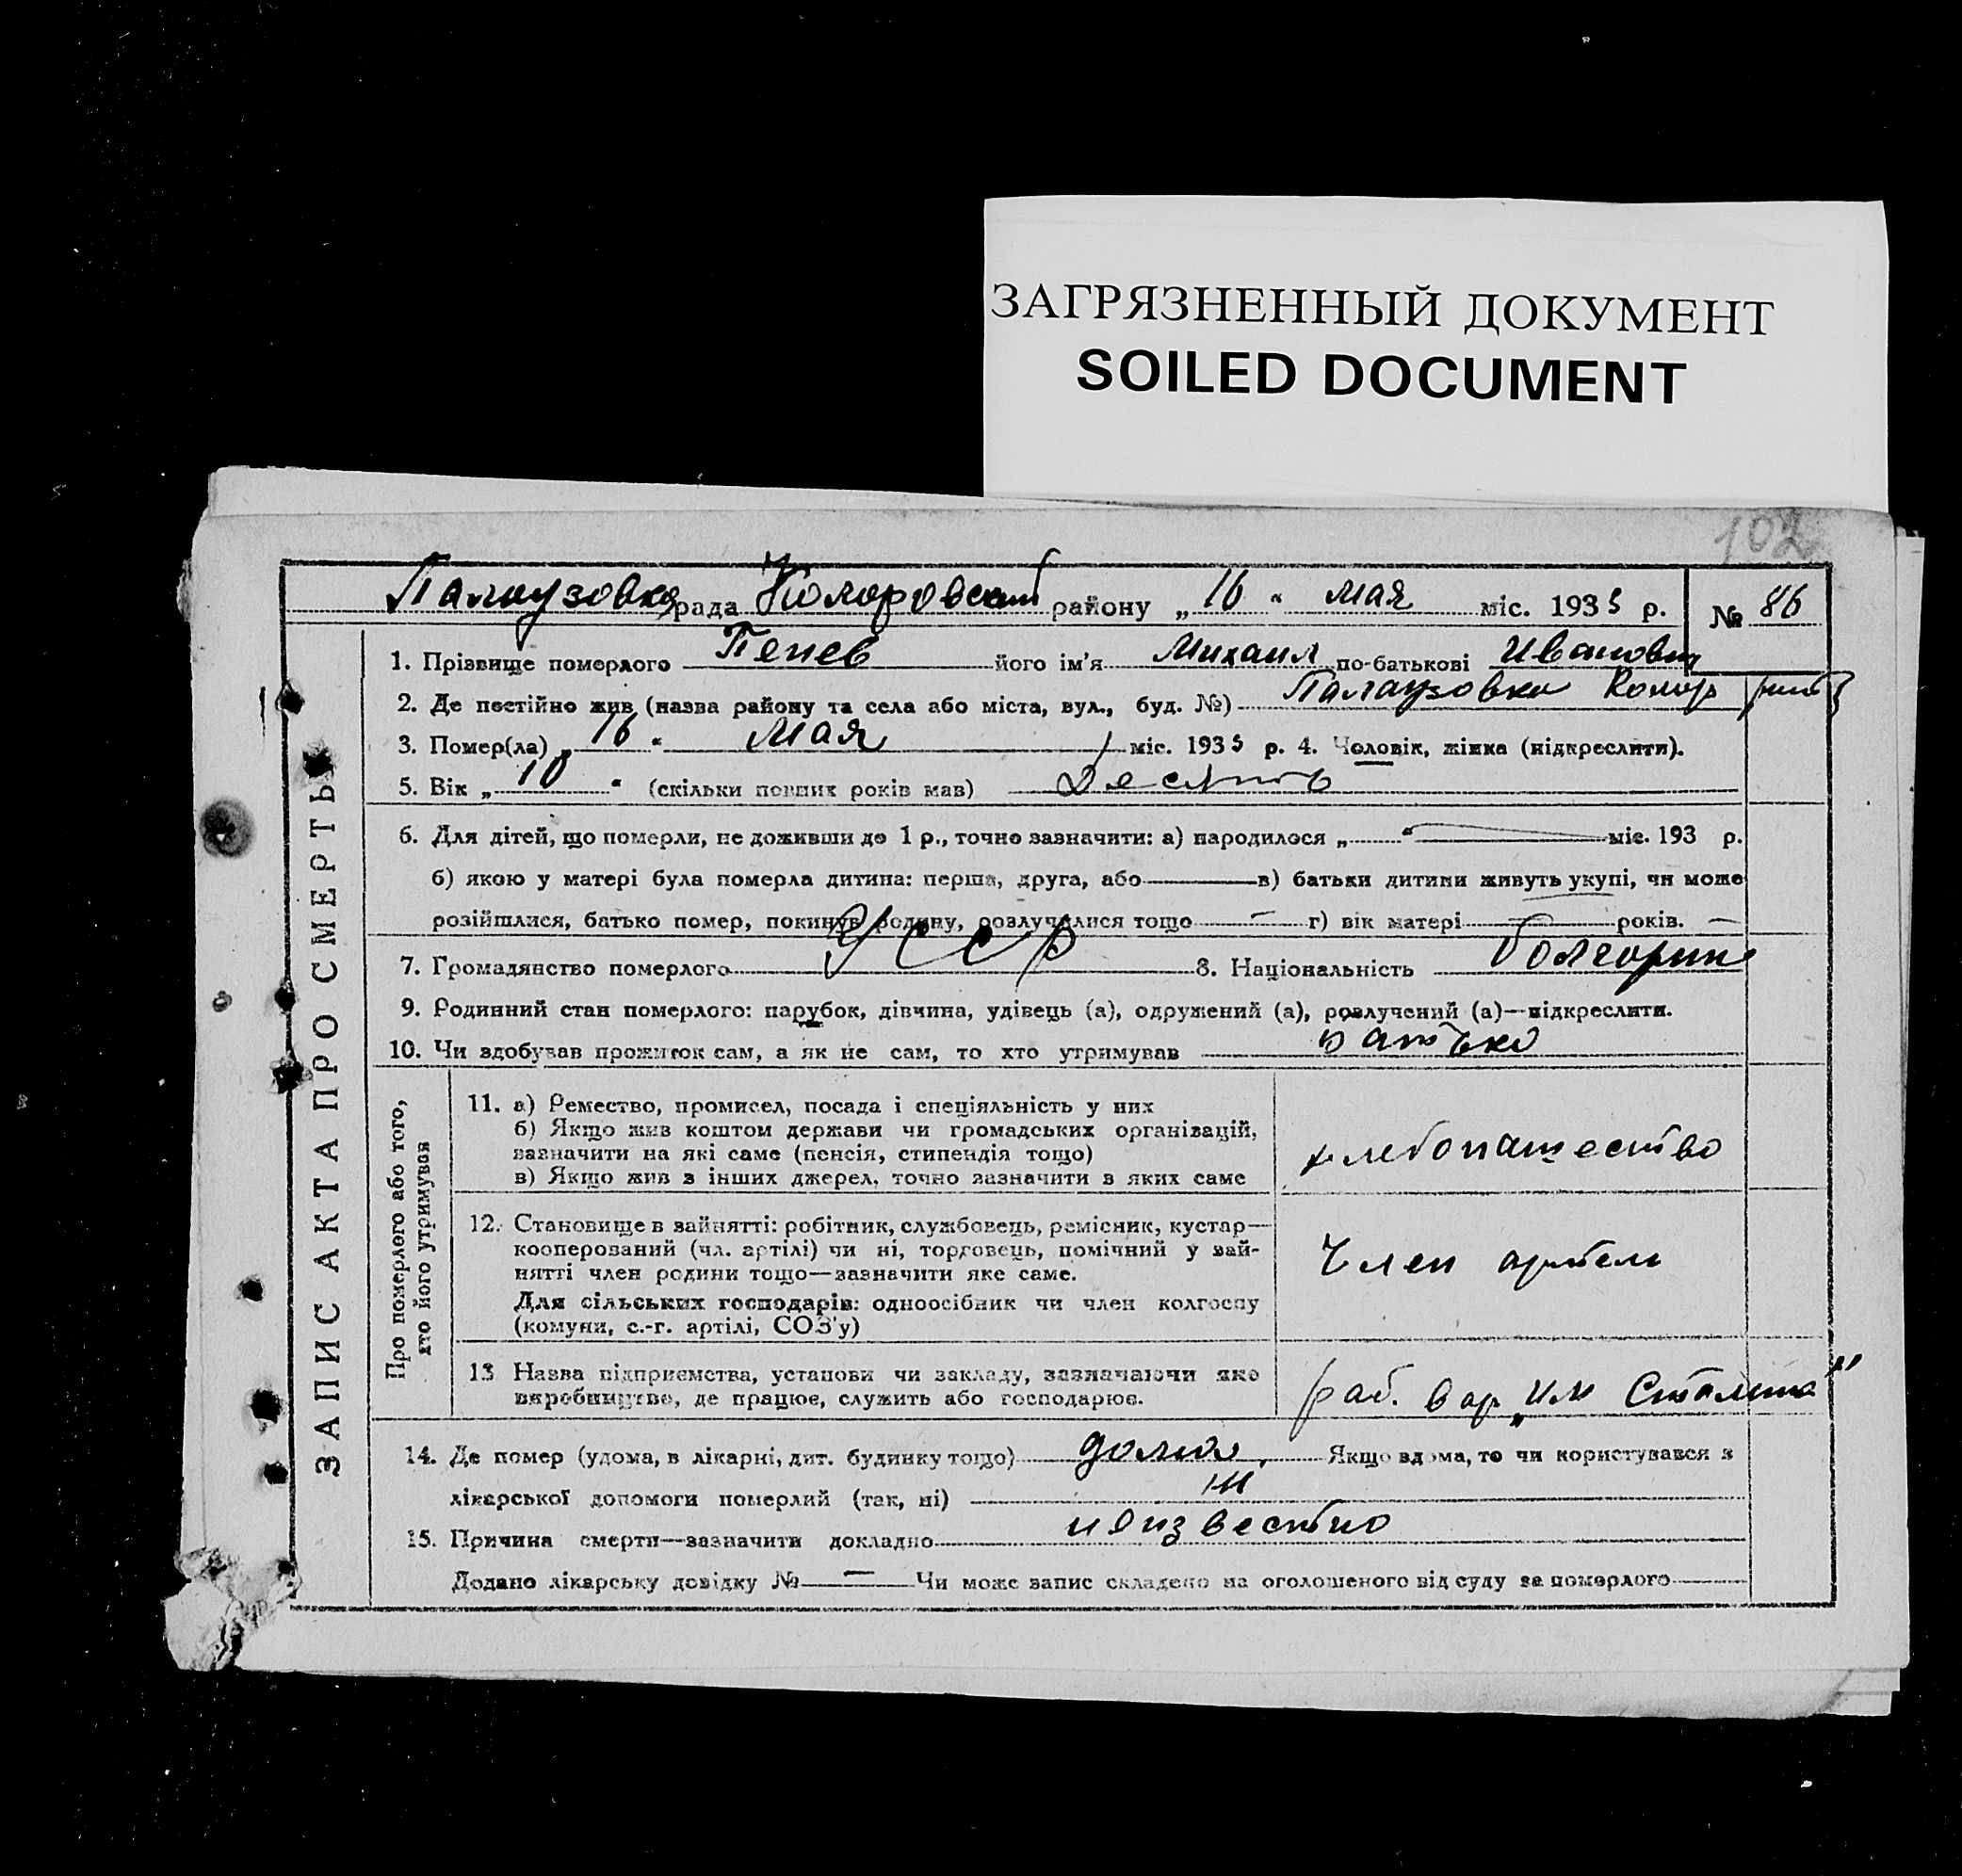 ЗАГРЯЗНЕННЫЙ ДОКУМЕНТ
SOILED DOCUMENT
102
Палаузовка рада Коларовский району „ 16 “ мая міс. 1933 р. № 86
1. Прізвище померлого Пенев його ім'я Михаил по-батькові Иванович
2. Де постійно жив (назва району та села або міста, вул., буд. №) Палаузовка Колар
3. Помер(ла) „ 16 “ мая міс. 1933 р. 4. Чоловік, жінка (підкреслити).
5. Вік „ 10 “ (скільки повних років мав) десять
6. Для дітей, що померли, не доживши до 1 р., точно зазначити: а) народилося „ “ — міс. 193 р.
б) якою у матері була померла дитина: перша, друга, або — в) батьки дитини живуть укупі, чи може
розійшлися, батько помер, покинув родину, розлучилися тощо — г) вік матері — років. —
7. Громадянство померлого УССР 8. Національність болгарин
9. Родинний стан померлого: парубок, дівчина, удівець (а), одружений (а), розлучений (а)—підкреслити.
10. Чи здобував прожиток сам, а як не сам, то хто утримував батько
ЗАПИС АКТА ПРО СМЕРТЬ
Про померлого або того,
хто його утримував
11. а) Ремество, промисел, посада і спеціяльність у них
б) Якщо жив коштом держави чи громадських організацій,
зазначити на які саме (пенсія, стипендія тощо)
в) Якщо жив з інших джерел, точно зазначити з яких саме
хлебопашество
12. Становище в зайнятті: робітник, службовець, ремісник, кустар—
кооперований (чл. артілі) чи ні, торговець, помічний у зай-
нятті член родини тощо—зазначити яке саме.
Для сільських господарів: одноосібник чи член колгоспу
(комуни, с.-г. артілі, СОЗ'у)
Член артели
13 Назва підприємства, установи чи закладу, зазначаючи яке
виробництво, де працює, служить або господарює.
раб. в ар „им Сталина“
14. Де помер (удома, в лікарні, дит. будинку тощо) дома, Якщо вдома, то чи користувався з
лікарської допомоги померлий (так, ні) ні
15. Причина смерти—зазначити докладно неизвестно
Додано лікарську довідку № — Чи може запис складено на оголошеного від суду за померлого